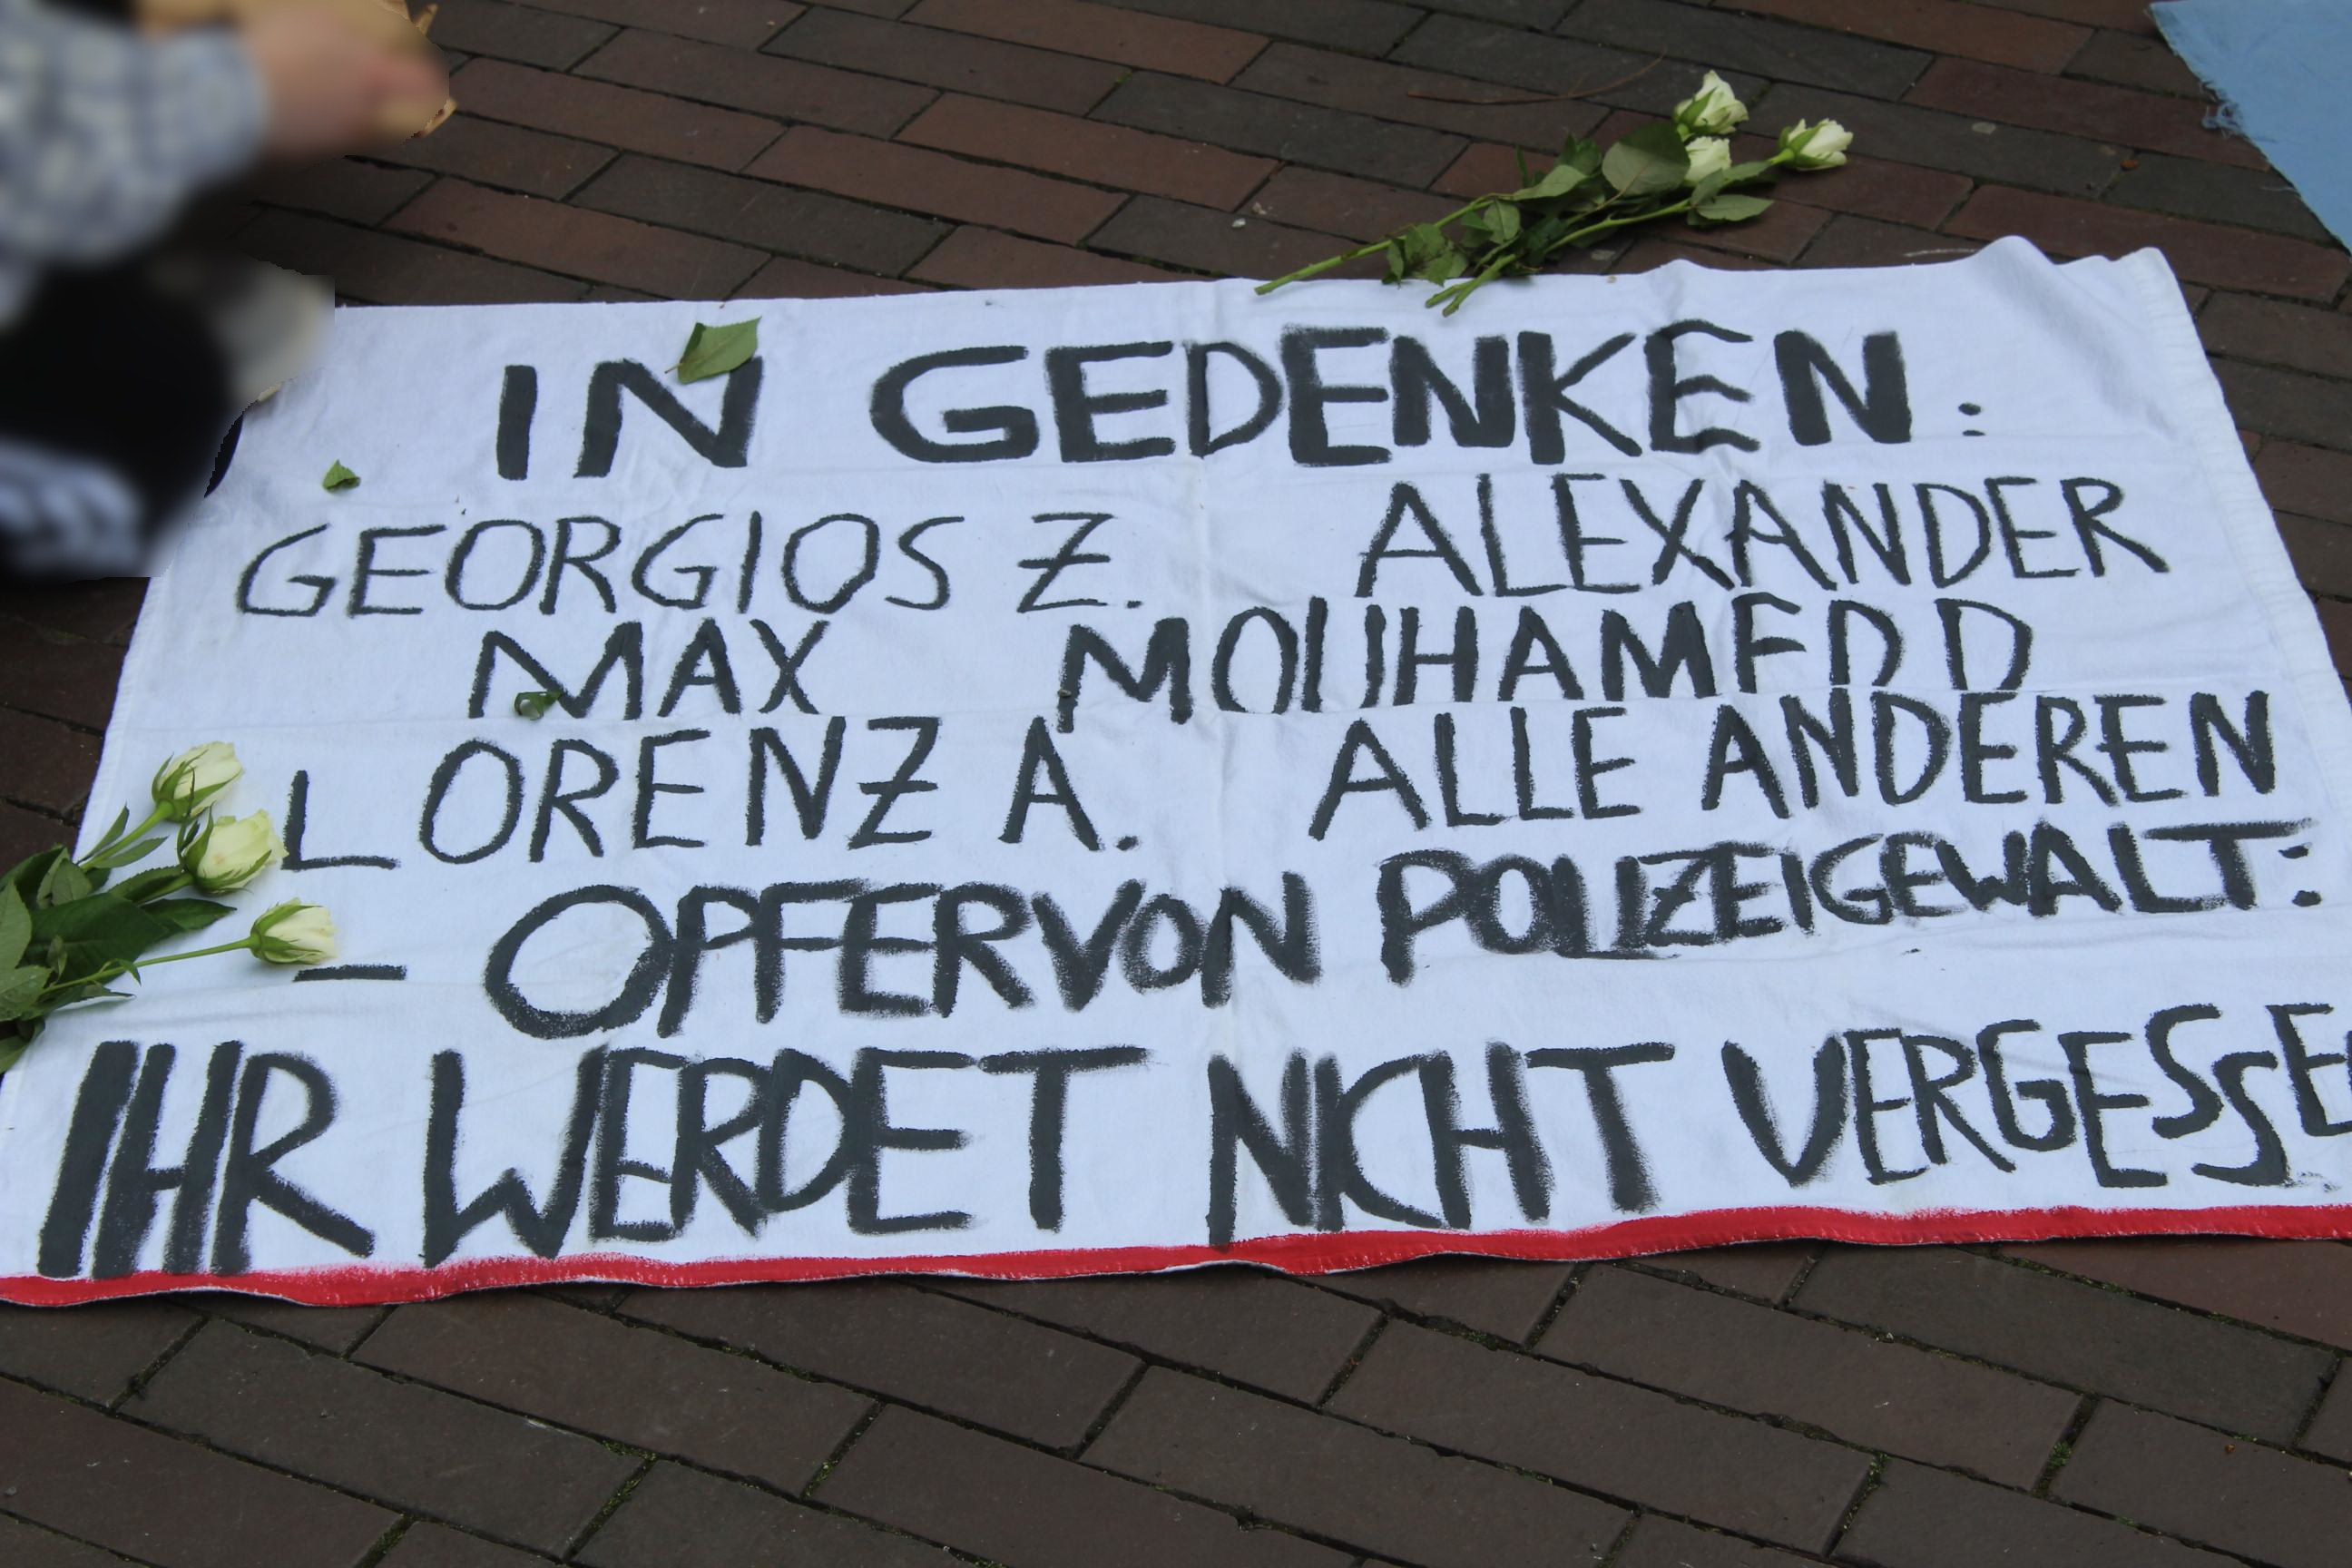 IN GEDENKEN:
GEORGIOS Z. ALEXANDER
MAX MOUHAMED D
LORENZ A. ALLE ANDEREN
– OPFER VON POLIZEIGEWALT:
IHR WERDET NICHT VERGESSE